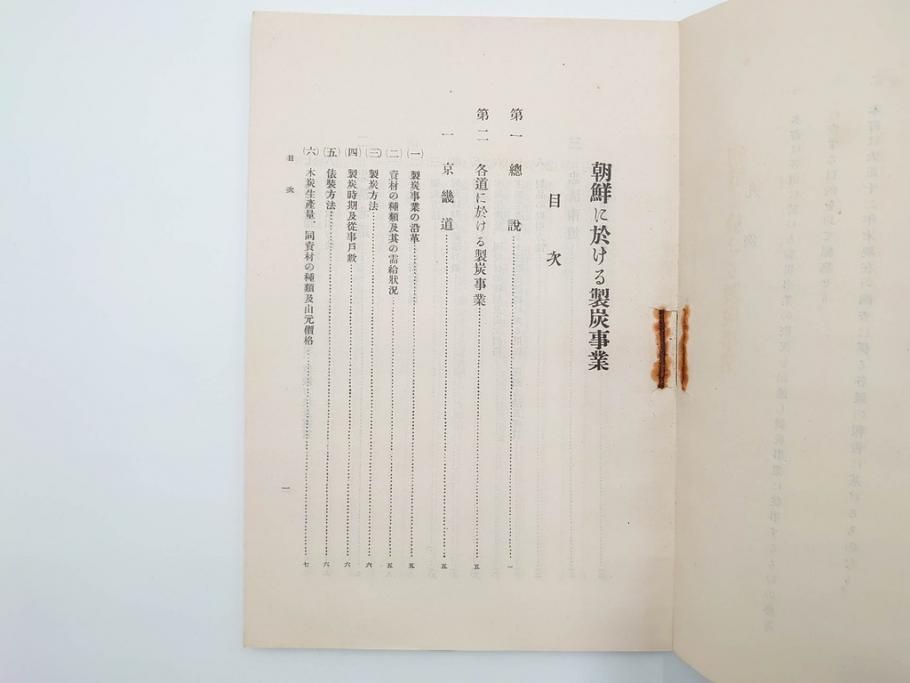 朝鮮に於ける製炭事業
目次
第一 總說……一
第二 各道に於ける製炭事業……五
一 京畿道……五
(一) 製炭事業の沿革……五
(二) 資材の種類及其の需給狀況……五
(三) 製炭方法……六
(四) 製炭時期及從事戶數……六
(五) 俵裝方法……六
(六) 木炭生產量、同資材の種類及山元價格……七
目次
一